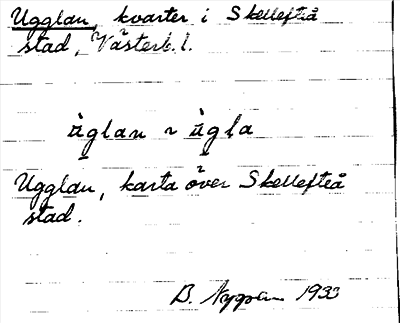 Ugglan, kvarter i Skellefteå
stad, Västerb. l.
ùglan ~ ùgla
Ugglan, karta över Skellefteå
stad.
B. Nygren 1933